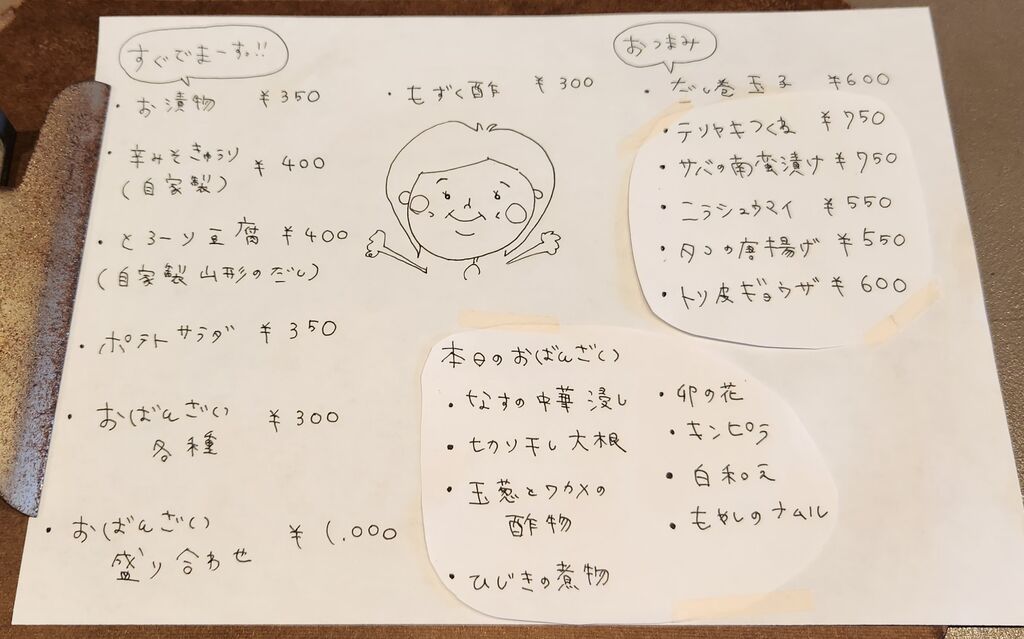 すぐでまーす!!
・お漬物 ¥350
・もずく酢 ¥300
・辛みそきゅうり ¥400
(自家製)
・とろーり豆腐 ¥400
(自家製 山形のだし)
・ポテトサラダ ¥350
・おばんざい ¥300
各種
・おばんざい ¥1,000
盛り合わせ
おつまみ
・だし巻玉子 ¥600
・テリヤキつくね ¥750
・サバの南蛮漬け ¥750
・ニラシュウマイ ¥550
・タコの唐揚げ ¥550
・トリ皮ギョウザ ¥600
本日のおばんざい
・なすの中華浸し
・切り干し大根
・玉葱とワカメの
酢物
・ひじきの煮物
・卯の花
・キンピラ
・白和え
・もやしのナムル